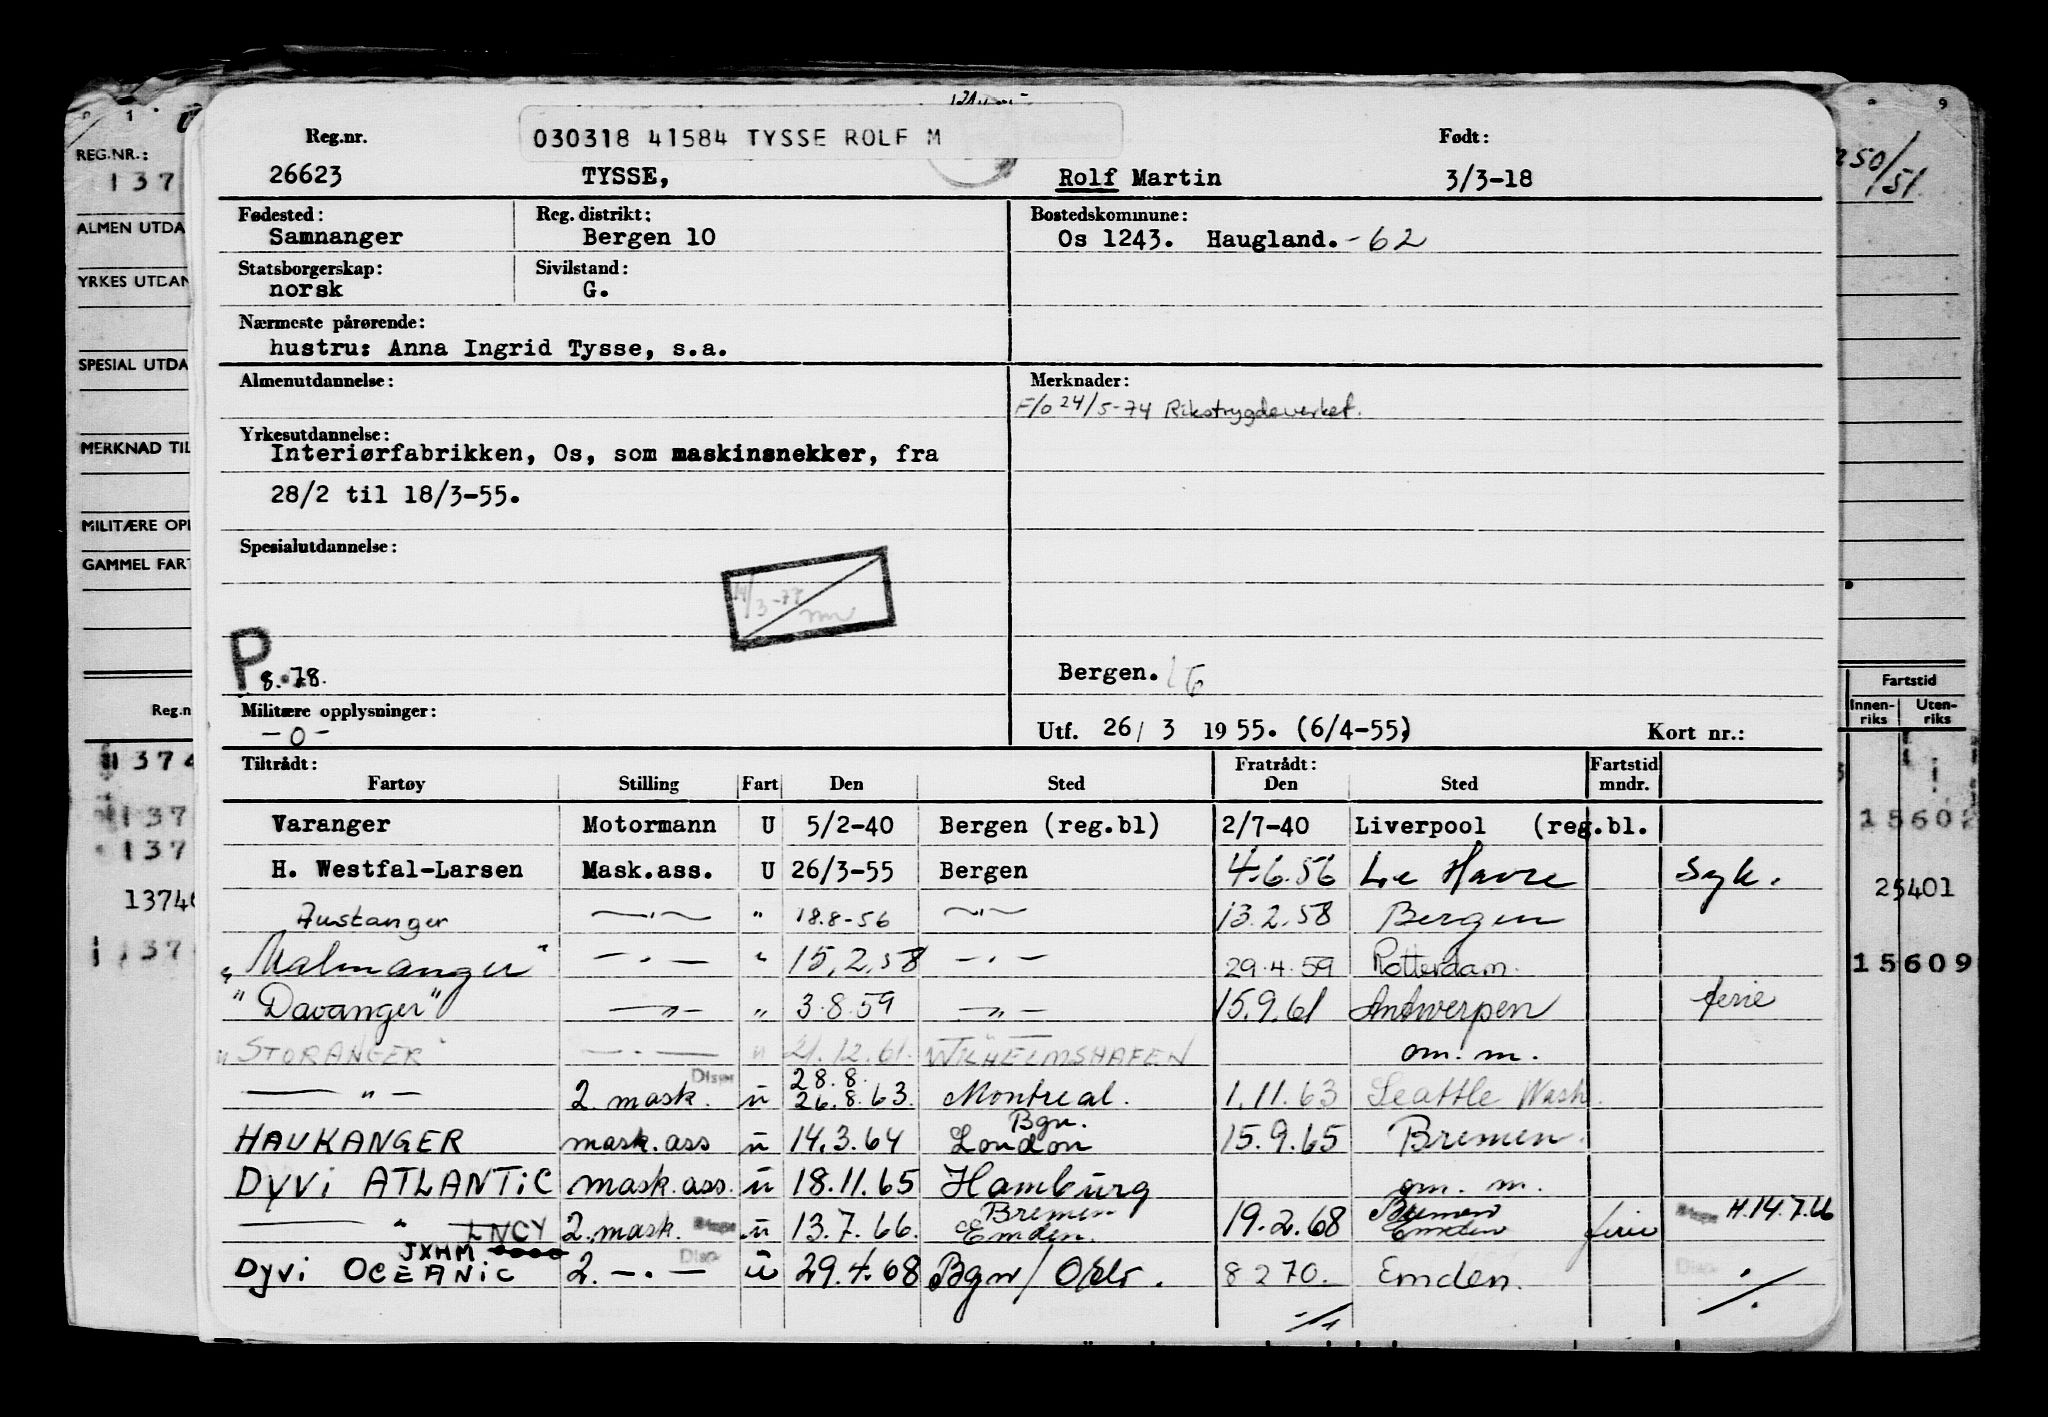 030318 41584 TYSSE ROLF M
Reg.nr. Født:
26623 TYSSE, Rolf Martin 3/3-18
Fødested: Reg. distrikt: Bostedskommune:
Samnanger Bergen 10 Os 1243. Haugland. -62
Statsborgerskap: Sivilstand:
norsk G.
Nærmeste pårørende:
hustru: Anna Ingrid Tysse, s.a.
Almenutdannelse: Merknader:
F/o 24/5-74 Rikstrygdeverket.
Yrkesutdannelse:
Interiørfabrikken, Os, som maskinsnekker, fra
28/2 til 18/3-55.
Spesialutdannelse:
P 8.78. Bergen.
Militære opplysninger:
-0- Utf. 26/ 3 1955. (6/4-55) Kort nr.:
Tiltrådt: Fratrådt: Fartstid
Fartøy Stilling Fart Den Sted Den Sted mndr.
Varanger Motormann U 5/2-40 Bergen (reg.bl) 2/7-40 Liverpool (reg.bl.
H. Westfal-Larsen Mask.ass. U 26/3-55 Bergen 4.6.56 Le Havre Syk.
Fustanger —"— " 18.8-56 —"— 13.2.58 Bergen
"Malmanger" — . — " 15.2.58 — . — 29.4.59 Rotterdam.
"Davanger" —"— " 3.8.59 —"— 15.9.61 Antwerpen ferie
"STORANGER" — . — " 21.12.61. WILHELMSHAFEN om. m.
— " — 2. mask. Disp u 28.8. 26.8.63. Montreal. 1.11.63 Seattle Wash.
HAUKANGER mask. ass u 14.3.64 Bgn. London 15.9.65 Bremen.
DYVI ATLANTIC mask. ass. u 18.11.65 Hamburg om. m.
— " — LNCY 2. mask. u 13.7.66. Bremen Emden. 19.2.68 Bremen Emden ferie H.14.7.66
JXHM
Dyvi OCEANIC 2. — . — Disp u 29.4.68 Bgn/ 8 2 70. Emden. ./.
./.
1 9
REG.NR.: 50/51
137
ALMEN UTDA
YRKES UTDAN
SPESIAL UTDA
MERKNAD TIL
MILITÆRE OPP
GAMMEL FART
Fartstid
Reg.n Innen-riks Uten-riks
1374
137 15602
137
13740 25401
137 15609